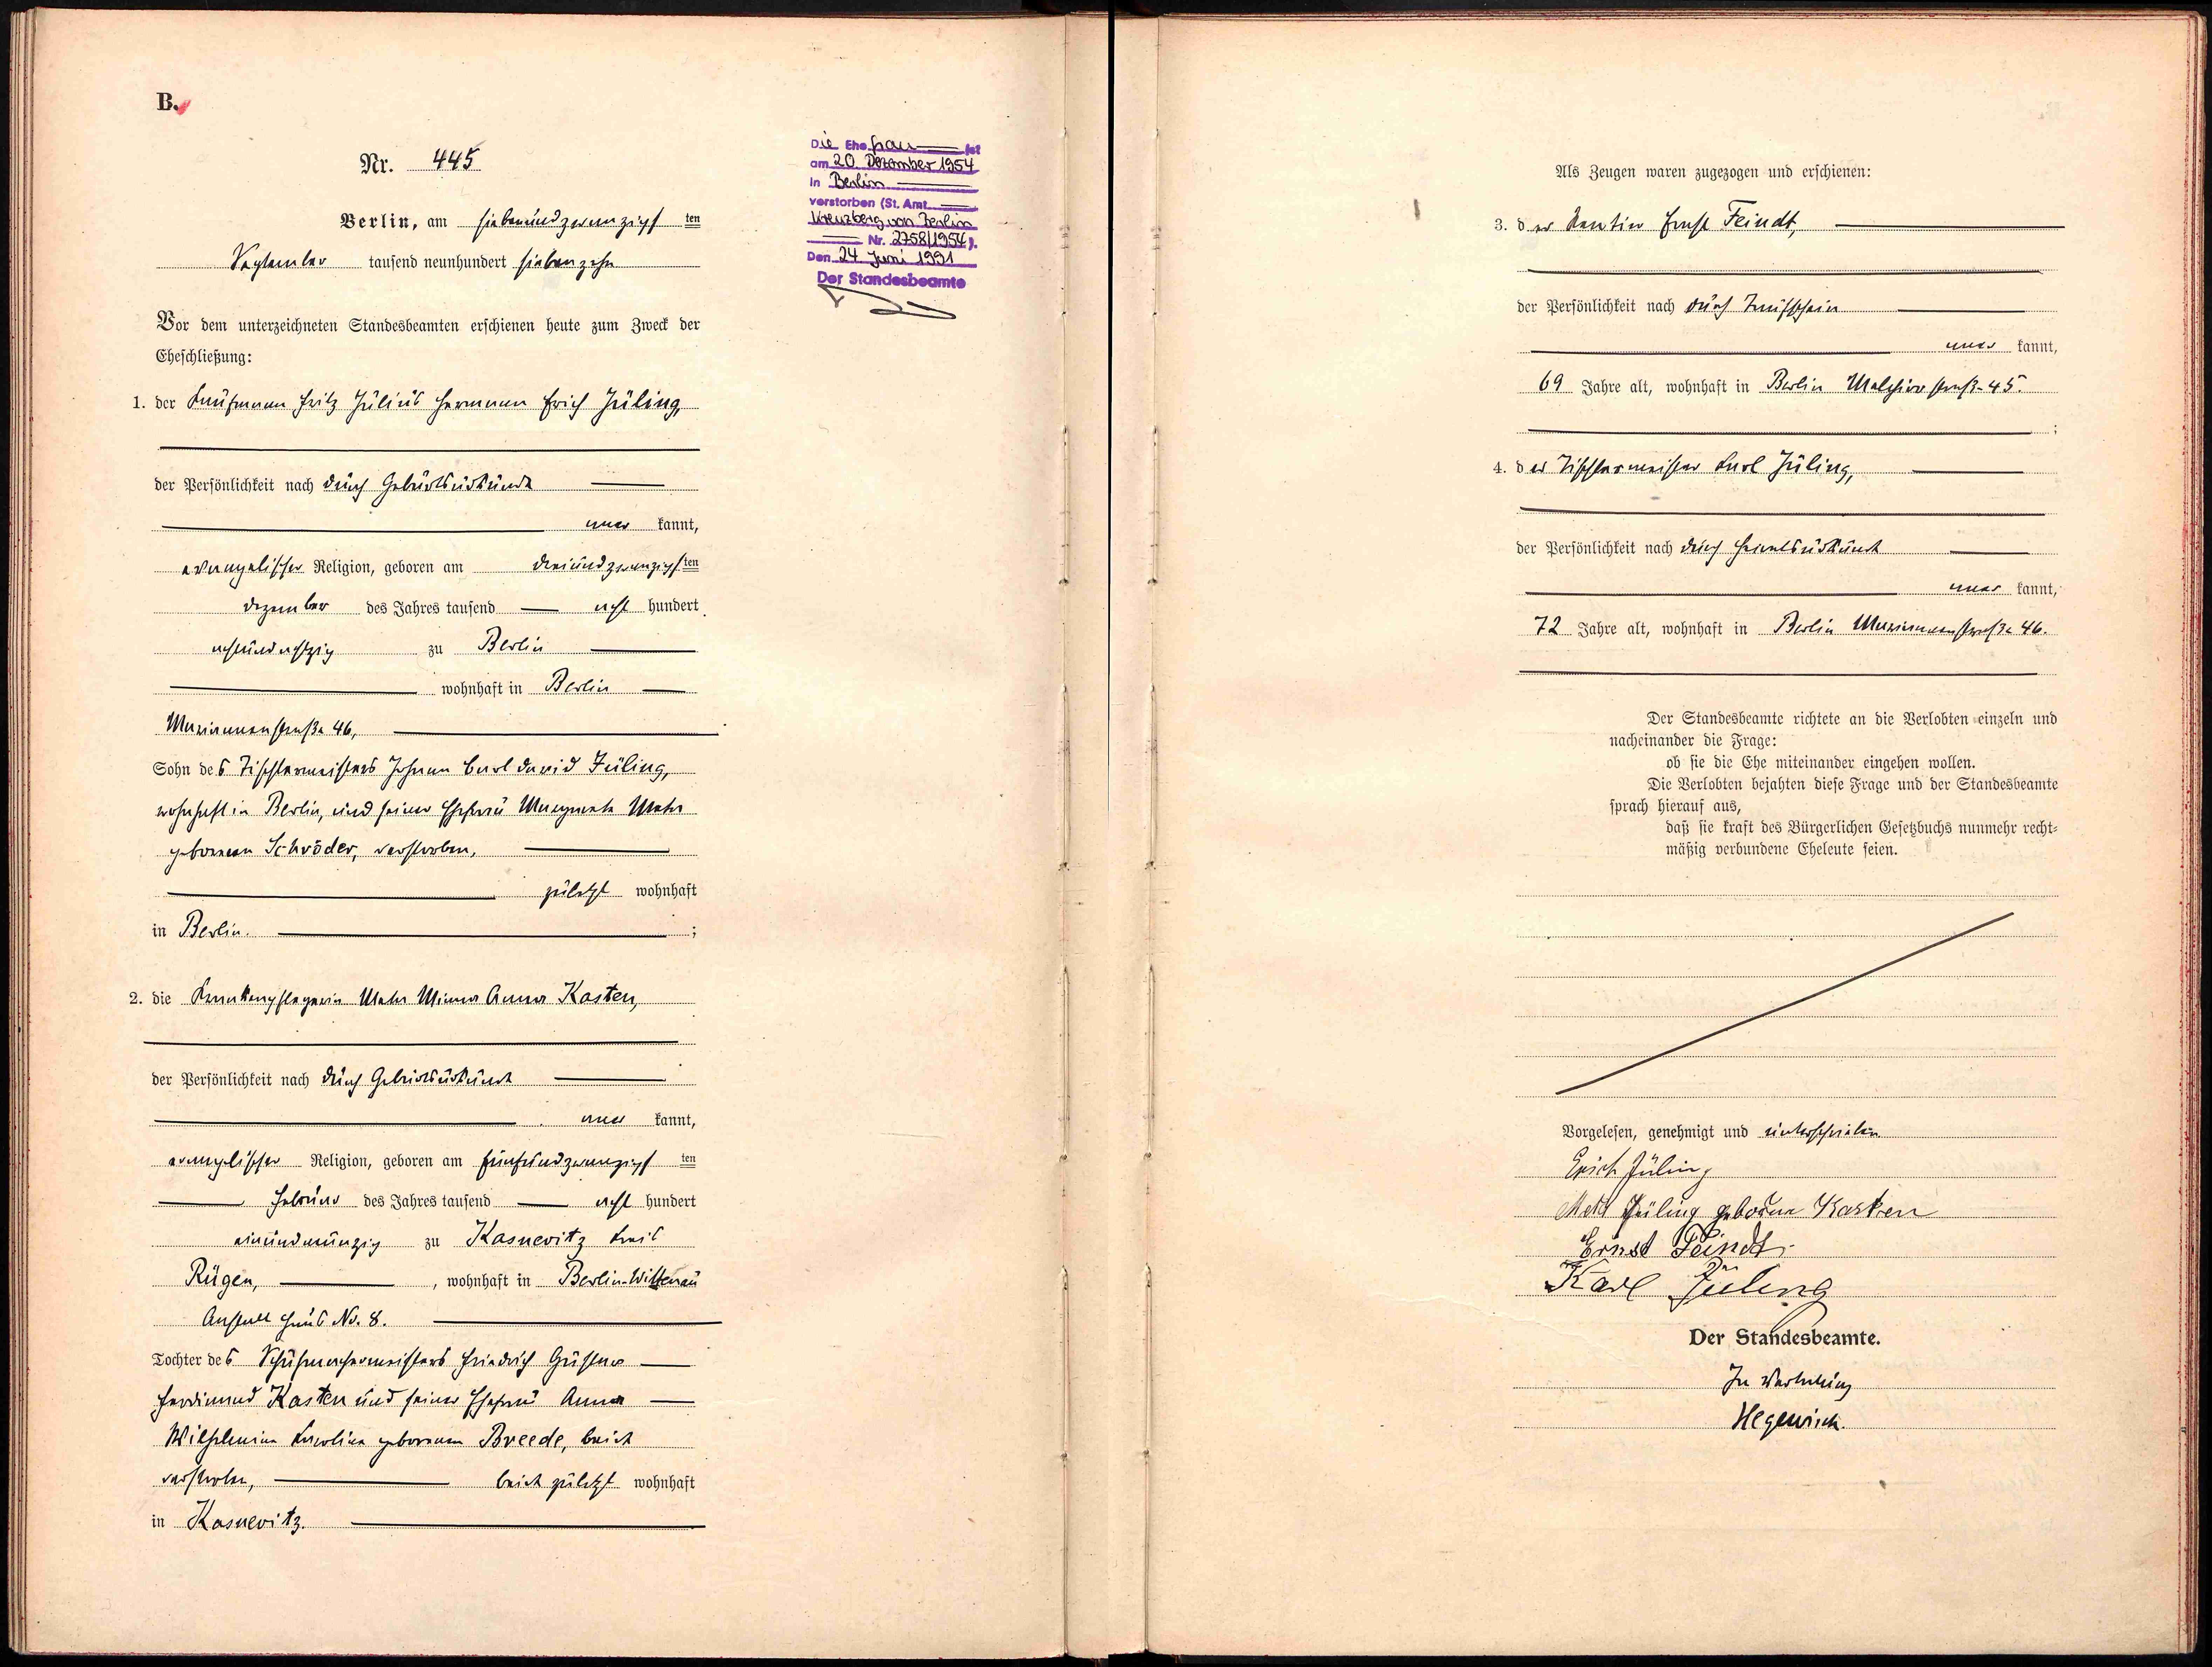 B.
Nr. 445
Berlin, am siebenundzwanzigsten
September tausend neunhundert siebenzehn
Vor dem unterzeichneten Standesbeamten erschienen heute zum Zweck der
Eheschließung:
1. der Kaufmann Fritz Julius Hermann Erich Jüling,
der Persönlichkeit nach durch Geburtsurkunde
aner kannt,
evangelischer Religion, geboren am dreiundzwanzigsten
Dezember des Jahres tausend acht hundert
achtundachtzig zu Berlin
wohnhaft in Berlin
Mariannenstraße 46,
Sohn des Tischlermeisters Johann Carl David Jüling,
wohnhaft in Berlin, und seiner Ehefrau Margarete Meta
geborenen Schröder, verstorben,
zuletzt wohnhaft
in Berlin. ;
2. die Krankenpflegerin Meta Minna Anna Kasten,
der Persönlichkeit nach durch Geburtsurkunde
aner kannt,
evangelischer Religion, geboren am fünfundzwanzigsten
Februar des Jahres tausend acht hundert
einundneunzig zu Kasnevitz Kreis
Rügen, , wohnhaft in Berlin-Wittenau
Anstalt Haus No. 8.
Tochter des Schuhmachermeisters Friedrich Gustav
Ferdinand Kasten und seiner Ehefrau Anna
Wilhelmine Karoline geborenen Breede, beide
verstorben, beide zuletzt wohnhaft
in Kasnevitz.
Die Ehefrau ist
am 20. Dezember 1954
in Berlin
verstorben (St. Amt
Kreuzberg von Berlin
Nr. 2758/1954).
Den 24 Juni 1991
Der Standesbeamte
Als Zeugen waren zugezogen und erschienen:
3. der Rentier Ernst Feindt,
der Persönlichkeit nach durch Taufschein
aner kannt,
69 Jahre alt, wohnhaft in Berlin Melchiorstraße 45.
;
4. der Tischlermeister Karl Jüling,
der Persönlichkeit nach durch Heiratsurkunde
aner kannt,
72 Jahre alt, wohnhaft in Berlin Mariannenstraße 46.
Der Standesbeamte richtete an die Verlobten einzeln und
nacheinander die Frage:
ob sie die Ehe miteinander eingehen wollen.
Die Verlobten bejahten diese Frage und der Standesbeamte
sprach hierauf aus,
daß sie kraft des Bürgerlichen Gesetzbuchs nunmehr recht-
mäßig verbundene Eheleute seien.
Vorgelesen, genehmigt und unterschrieben
Erich Jüling
Meta Jüling geborene Kasten
Ernst Feindt.
Karl Jüling
Der Standesbeamte.
In Vertretung
Hegewisch.